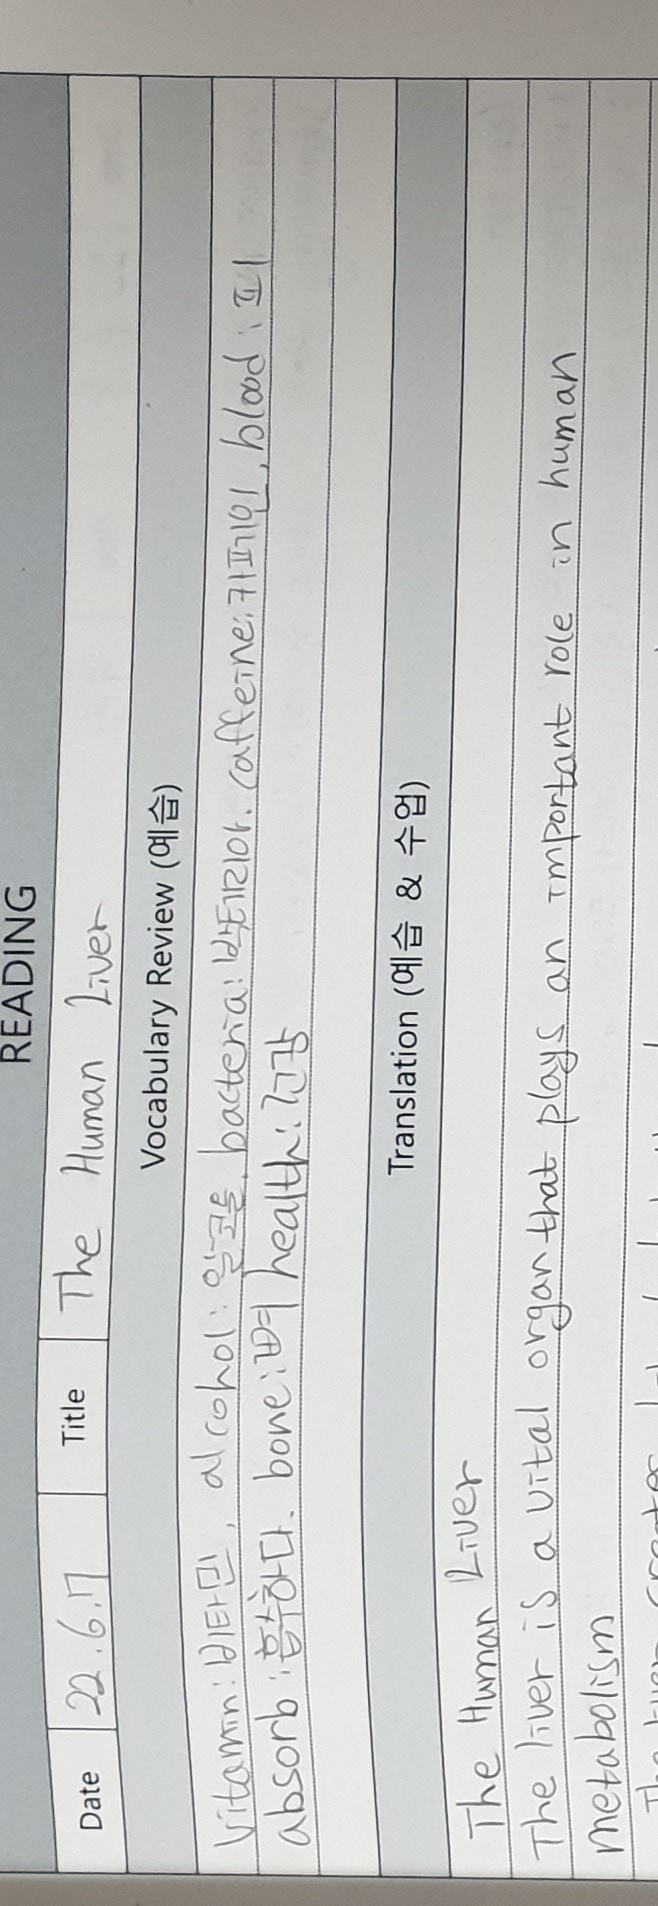 READING
Date 22.6.17 Title The Human Liver
Vocabulary Review (예습)
Vitamin: 비타민, alcohol: 알코올, bacteria: 박테리아. caffeine: 카페인, blood: 피
absorb: 흡수하다. bone: 뼈 health: 건강
Translation (예습 & 수업)
The Human Liver
The liver is a vital organ that plays an important role in human
metabolism
The liver creates